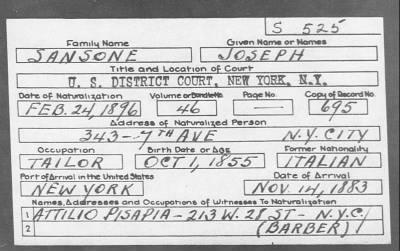 S 525
Family Name Given Name or Names
SANSONE JOSEPH
Title and Location of Court
U. S. DISTRICT COURT, NEW YORK, N.Y.
Date of Naturalization Volume or Bundle No. Page No. Copy of Record No.
FEB. 24, 1896 46 — 695
Address of Naturalized Person
343-7TH AVE N.Y. CITY
Occupation Birth Date or Age Former Nationality
TAILOR OCT 1, 1855 ITALIAN
Port of Arrival in the United States Date of Arrival
NEW YORK NOV. 14, 1883
Names, Addresses and Occupations of Witnesses To Naturalization
1 ATTILIO PISAPIA - 213 W. 28 ST - N.Y.C.
2 (BARBER)